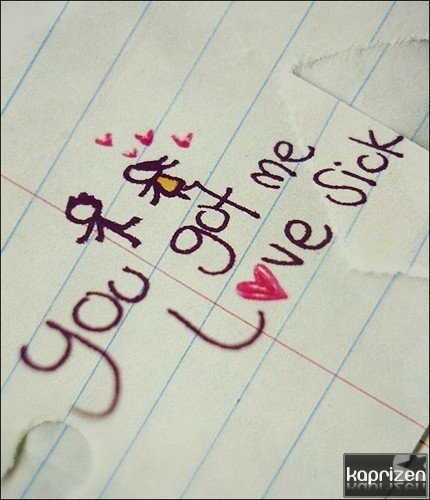 you got me
Love Sick
kaprizen